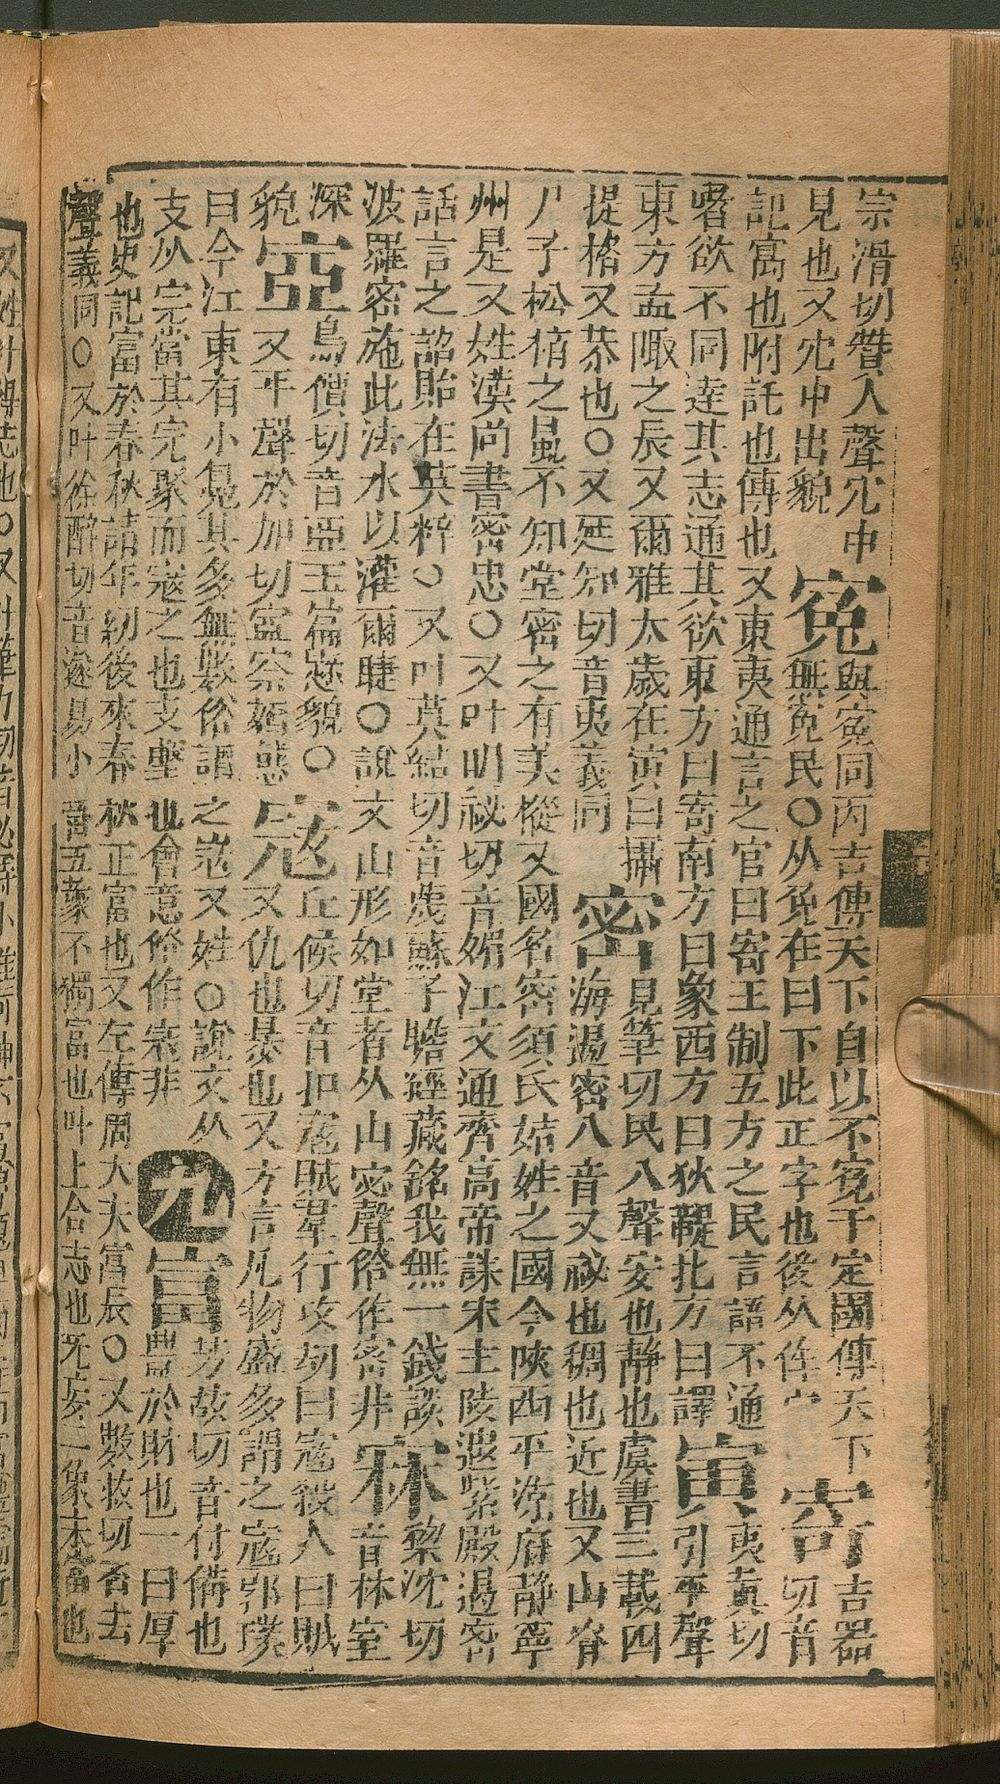 宗滑切簪入聲穴中
見也又穴中出貌
寃
與寃同丙吉傳天下自以不寃于定國傳天下
無寃民〇从免在冖下此正字也後从隹宀
寄
吉器
切音
記寓也附託也傳也又東夷通言之官曰寄王制五方之民言語不通
嗜欲不同達其志通其欲東方曰寄南方曰象西方曰狄鞮北方曰譯
寅
夷真切
引平聲
東方孟陬之辰又爾雅太歲在寅曰攝
提格又恭也〇又延知切音夷義同
密
覓筆切民入聲安也靜也虞書三載四
海遏密八音又祕也稠也近也又山脊
尸子松栢之鼠不知堂密之有美樅又國名密須氏姞姓之國今陝西平涼府靜寧
州是又姓漢尚書密忠〇又叶明祕切音媚江文通齊高帝誄宋主陵遐紫殿遏密
話言之詔貽在英粹〇又叶莫結切音蔑蘇子瞻經藏銘我無一錢談
波羅密施此法水以灌爾睫〇說文山形如堂者从山宓聲俗作密非
寐
黎沈切
音林室
深
貌
䆘
烏價切音亞玉篇䆘貌〇
又平聲於加切䆘窊姤態
寇
丘候切音扣宼賊羣行攻劫曰寇殺人曰賊
又仇也暴也又方言凡物盛多謂之寇郭璞
曰今江東有小鳧其多無數俗謂之寇又姓〇說文从
支从完當其完聚而寇之也支擊也會意俗作㓂非
九
富
芳故切音付備也
豐於財也一曰厚
也史記富於春秋謂年幼後來春秋正富也又左傳周大夫富辰〇又敷救切否去
聲義同〇又叶徐醉切音遂易小畜五象不獨富也叶上合志也旡妄二象未富也